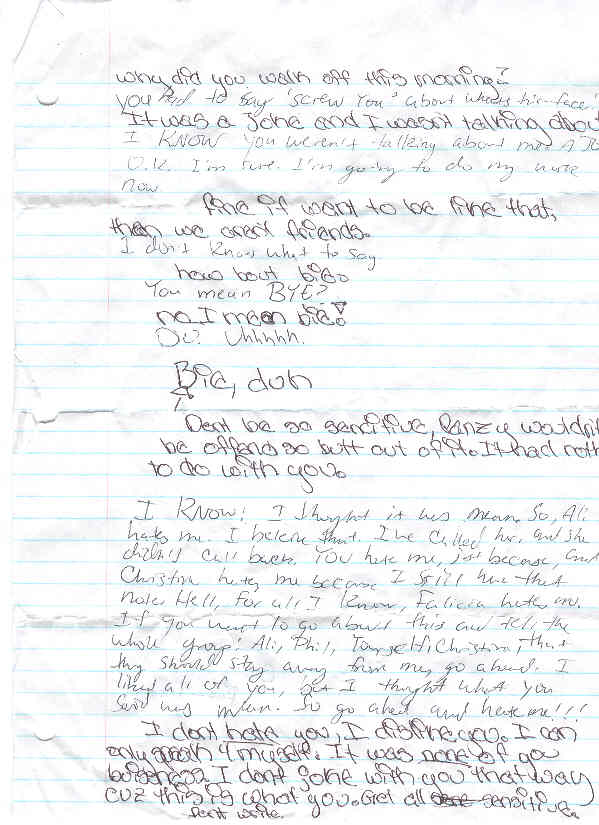 why did you walk off this morning?
you had to say 'screw you' about what's his-face!
It was a joke and I wasn't talking about
I KNOW you weren't talking about me. A JO
O.K. I'm sure. I'm going to do my work
now.
fine if want to be like that,
then we arent friends.
I don't know what to say
how bout bie.
You mean BYE?
no I mean bie.
Oo? Uhhhhh.
Bie, duh
Dont be so sencitive, wouldn't
be offend so butt out of it. It had noth
to do with you.
I KNOW! I thought it was mean. So, Ali
hates me. I believe that. I've called her, and she
didn't call back. You hate me, just because, and
Christina hates me because I still have that
note. Hell, for all I know, Falicia hates me.
If you want to go about this and tell the
whole group: Ali, Phil, Yourself, Christina, that
they should stay away from me, go ahead. I
liked all of you, but I thought what you
said was mean. So go ahead and hate me!!!
I dont hate you, I dislike you. I can
only speak 4 myself. It was none of you
I dont joke with you that way
cuz this is what you. Get all sensitive.
dont write